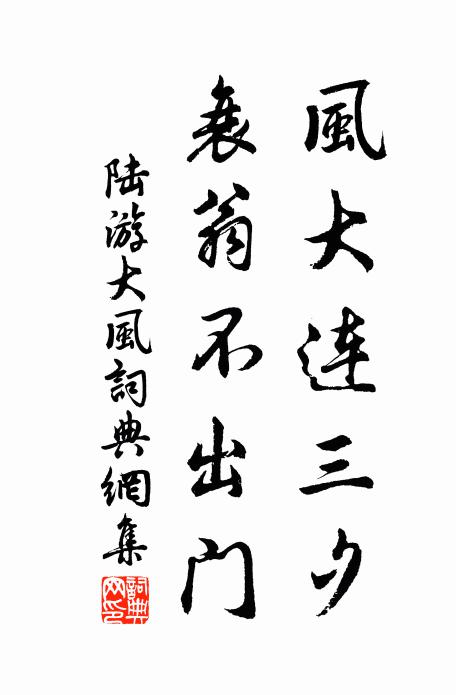 風大連三夕
衰翁不出門
陸游大風詞典網集
詞典網印